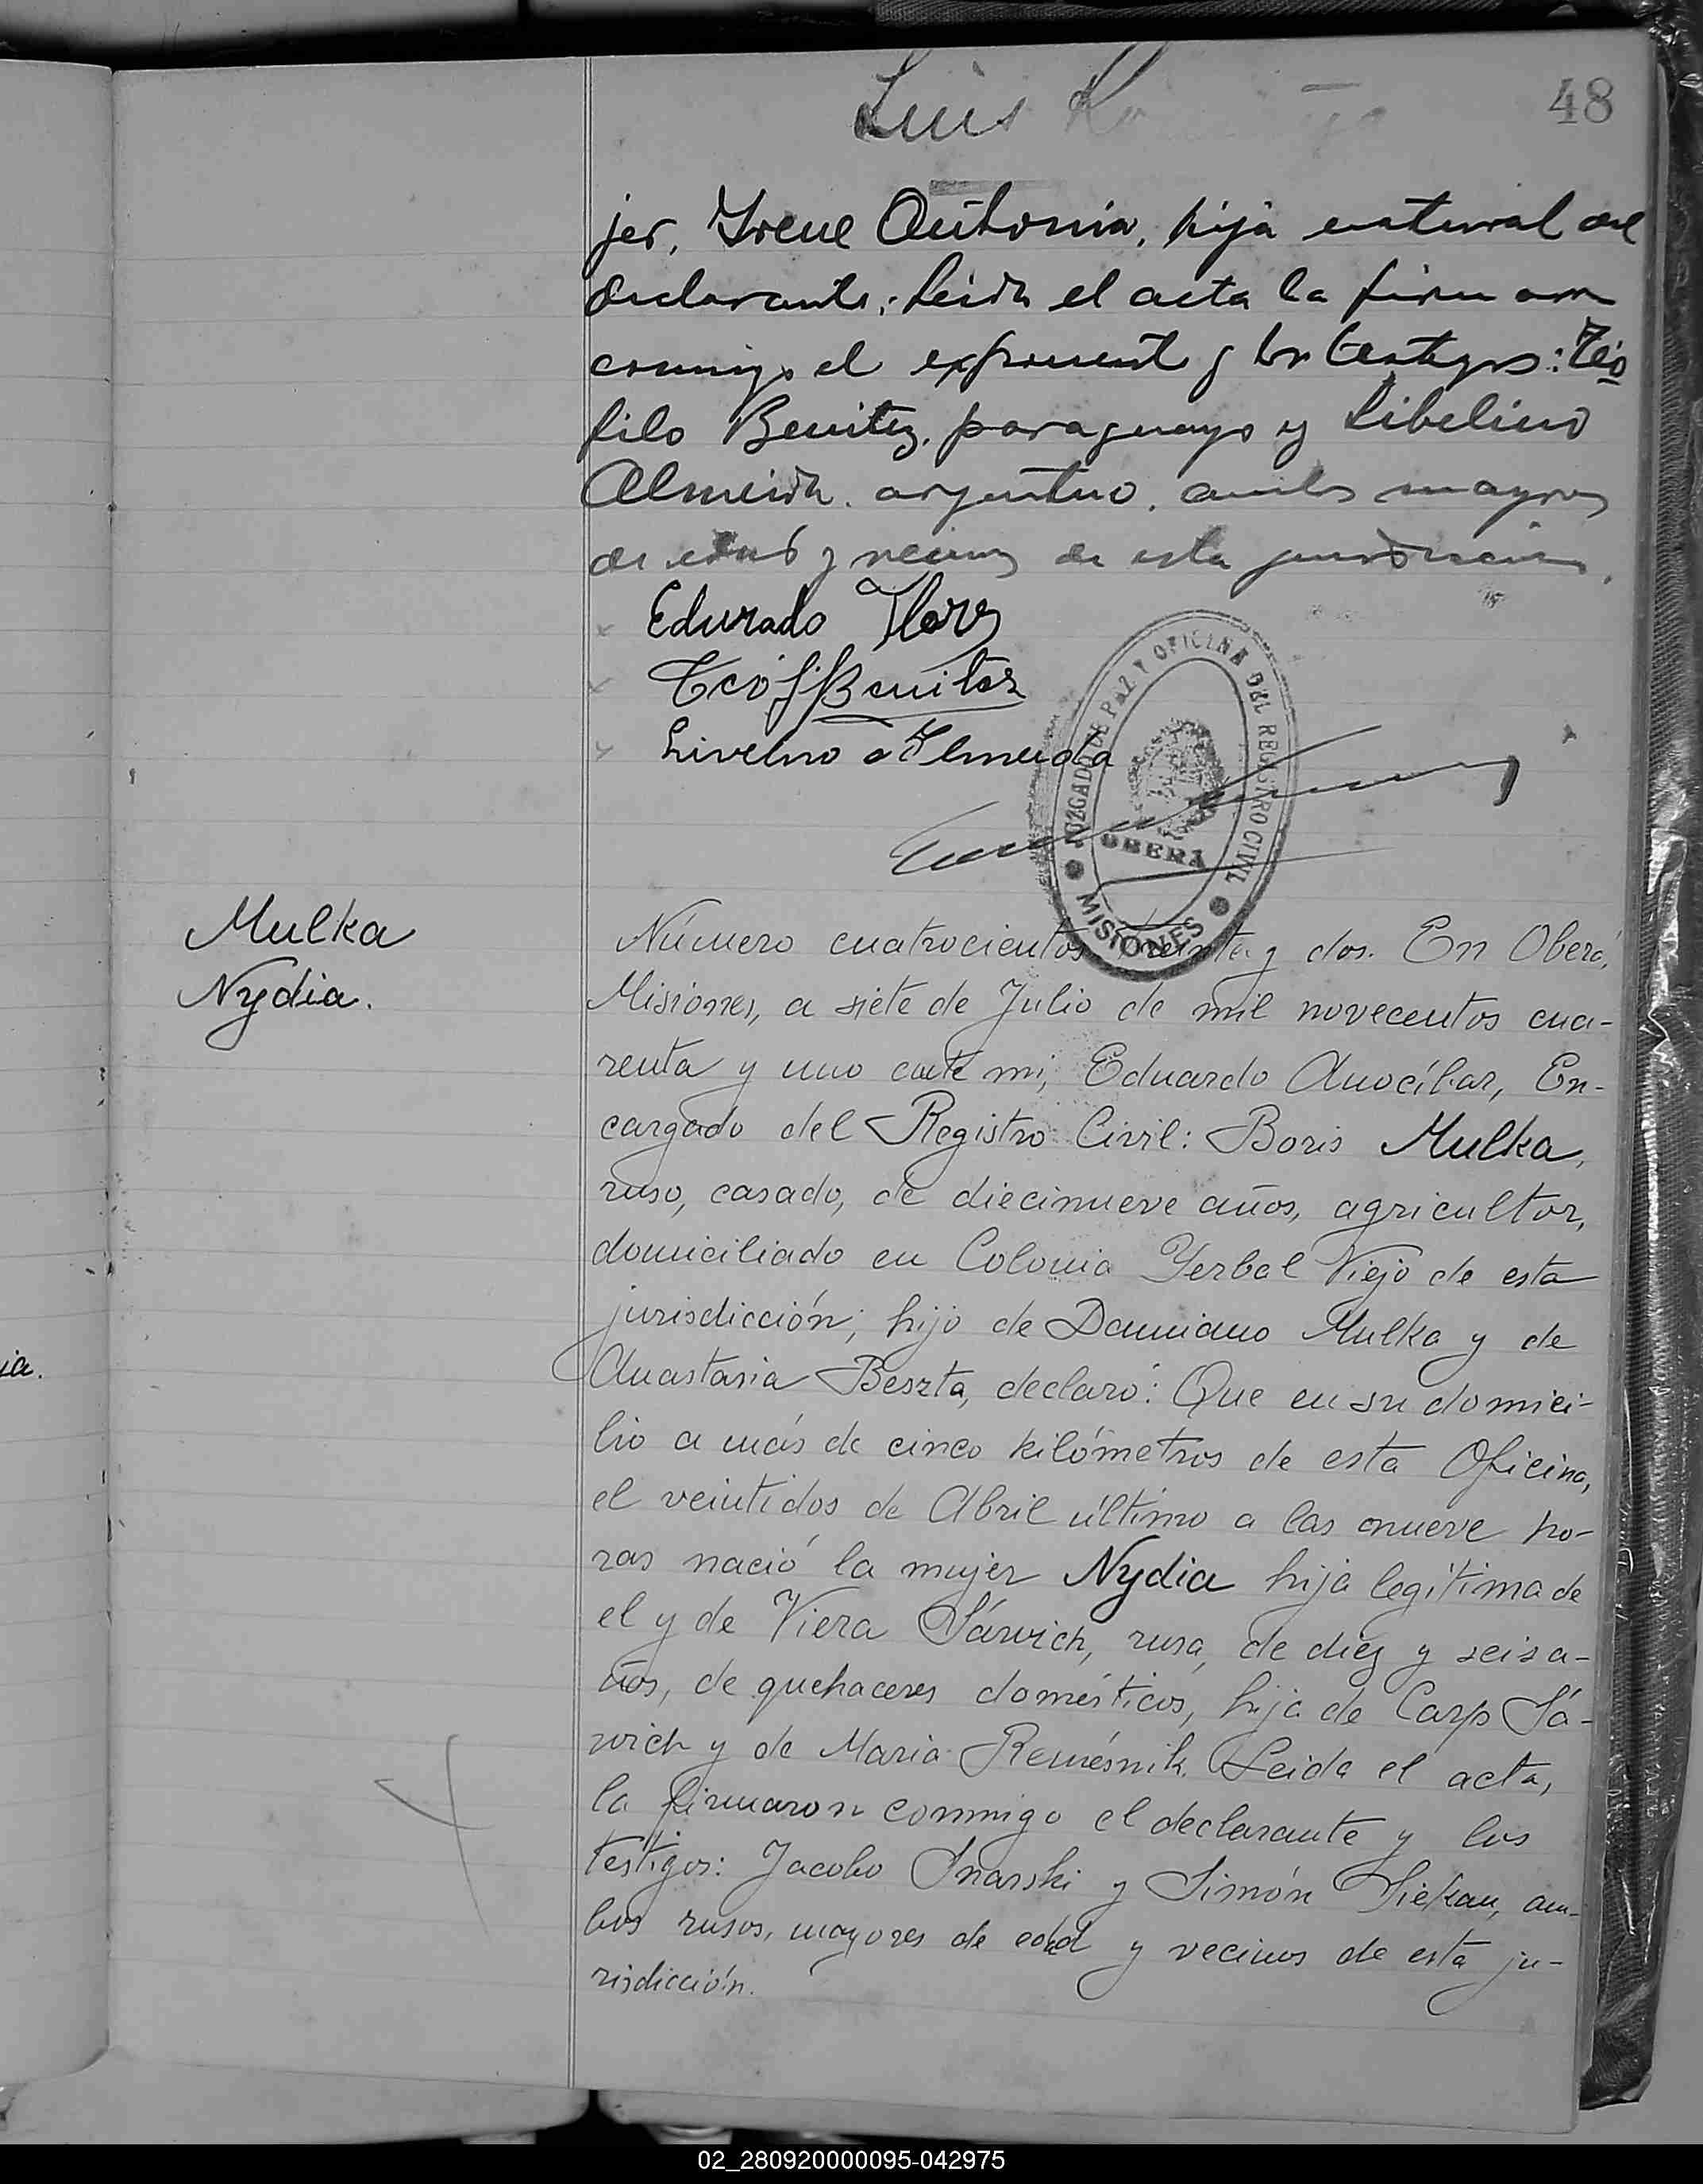 Luis
48
jer, Irene Antonia, hija natural del
declarante; Leída el acta la firmaron
conmigo el exponente y los testigos: Teó
filo Benitez, paraguayo y Libelino
Almeida, argentino, ambos mayores
de edad y vecinos de esta jurisdicción.
Edurado
Teóf. Benitez
Livelino Almeida
JUZGADO DE PAZ Y OFICINA DEL REGISTRO CIVIL
OBERÁ
MISIONES
Mulka
Nydia.
Número cuatrocientos treinta y dos. En Oberá,
Misiones, a siete de Julio de mil novecentos cua-
renta y uno ante mi, Eduardo Anocíbar, En-
cargado del Registro Civil: Boris Mulka,
ruso, casado, de diecinueve años, agricultor,
domiciliado en Colonia Yerbal Viejo de esta
jurisdicción; hijo de Damiano Mulka y de
Anastasia Beszta, declaró: Que en su domici-
lio a más de cinco kilómetros de esta Oficina,
el veintidos de Abril último a las nueve ho-
ras nació la mujer Nydia hija legítima de
el y de Viera Sáwich, rusa, de diez y seis a-
ños, de quehaceres domésticos, hija de Carp Sá-
wich y de Maria Remésnik. Leida el acta,
la firmaron conmigo el declarante y los
testigos: Jacobo Snarski y Simón Siekan, am-
bos rusos, mayores de edad y vecinos de esta ju-
risdicción.
ia.
02_280920000095-042975